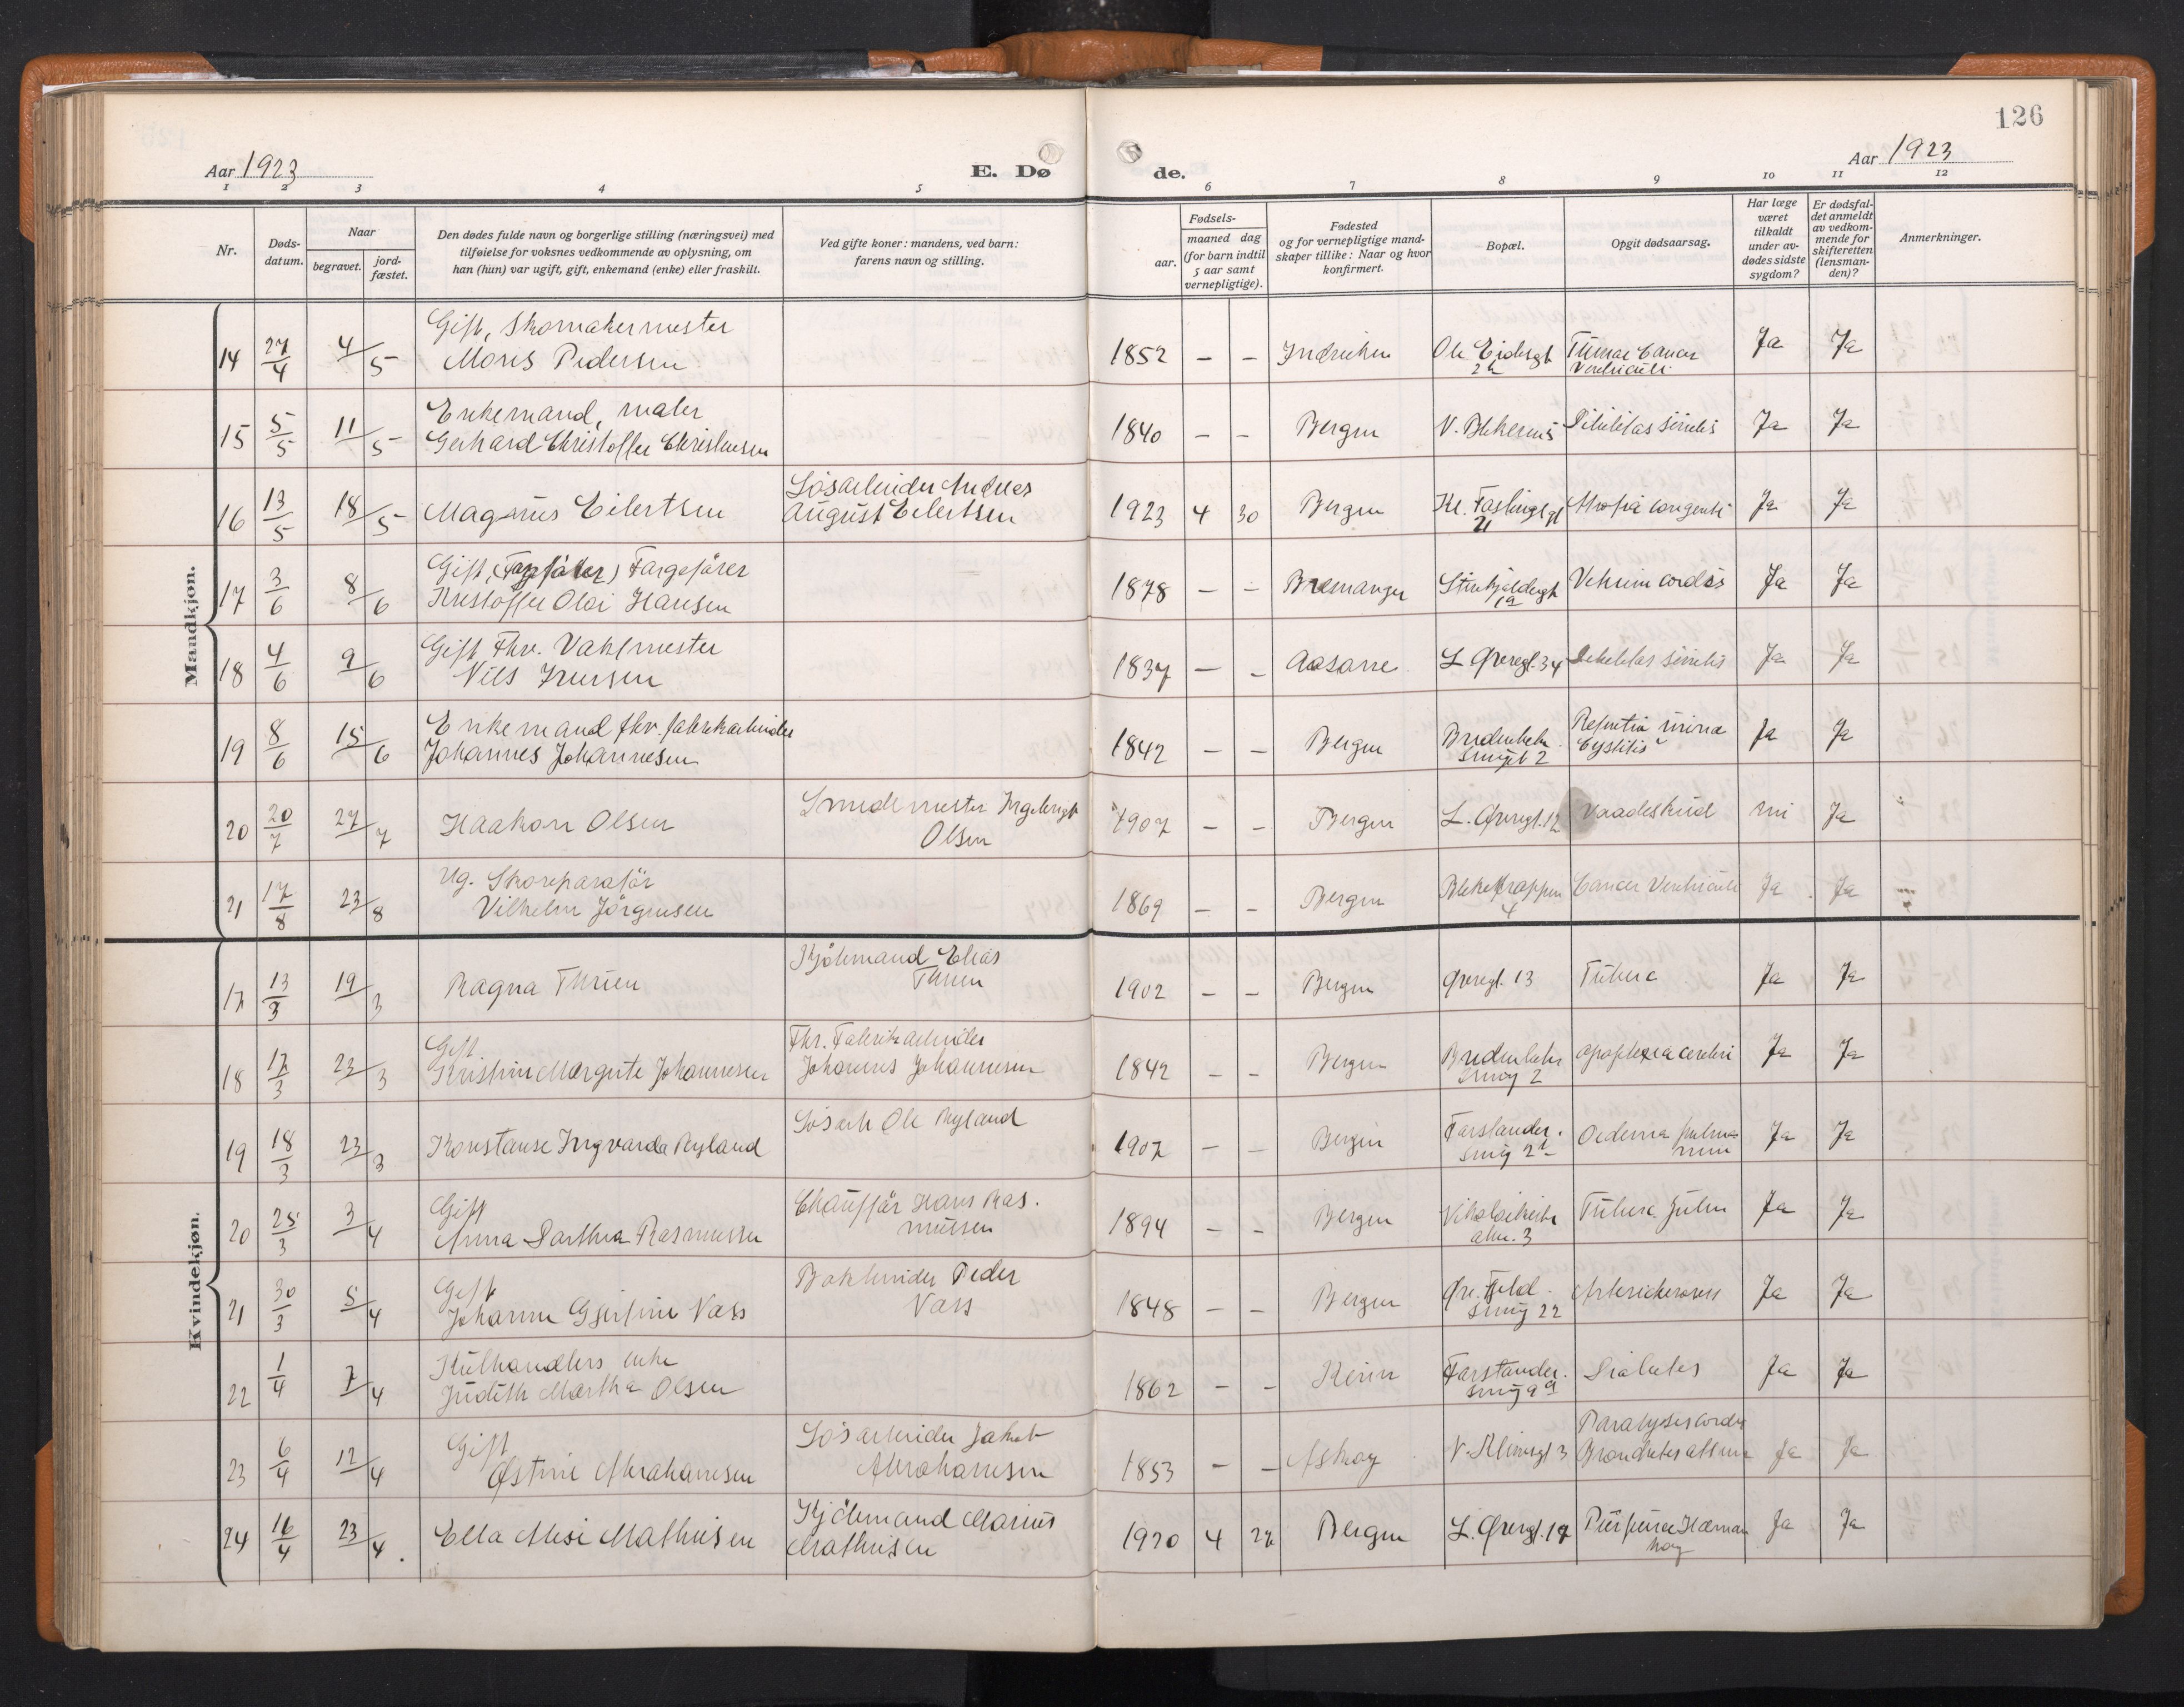 126
Aar 1923
E. Dø
de.
Aar 1923
1 2 3 4 5 6 7 8 9 10 11 12
Nr.
Døds-
datum.
Naar
begravet.
jord-
fæstet.
Den dødes fulde navn og borgerlige stilling (næringsvei) med
tilføielse for voksnes vedkommende av oplysning, om
han (hun) var ugift, gift, enkemand (enke) eller fraskilt.
Ved gifte koner: mandens, ved barn:
farens navn og stilling.
Fødsels-
aar.
maaned dag
(for barn indtil
5 aar samt
vernepligtige).
Fødested
og for vernepligtige mand-
skaper tillike: Naar og hvor
konfirmert.
Bopæl.
Opgit dødsaarsag.
Har læge
været
tilkaldt
under av-
dødes sidste
sygdom?
Er dødsfal-
det anmeldt
av vedkom-
mende for
skifteretten
(lensman-
den)?
Anmerkninger.
Mandkjøn.
Gift, Skomakermester
14 27/4 4/5 Mons Pedersen 1852 – – Ja Ja
Enkemand, maler
15 5/5 11/5 Gerhard Christoffer Christensen 1840 – – Bergen Ja Ja
Løsarbeider Andreas
16 13/5 18/5 Magnus Eilertsen August Eilertsen 1923 4 30 Bergen 21 Ja Ja
Gift, Fargefører
17 3/6 8/6 Kristoffer Olai Hansen 1878 – – Bremanger Vitium cordis Ja Ja
Gift Fhv. Vaktmester
18 4/6 9/6 Nils Iversen 1837 – – Aasane L. Øvregt. 34 Debilitas senilis Ja Ja
Enkemand fhv. fabrikarbeider
19 8/6 15/6 Johannes Johannesen 1842 – – Bergen Bredenbeks
smuget 2 Retentio urina
Cystitis Ja Ja
Smedemester Ingebrigt
20 20/7 27/7 Haakon Olsen Olsen 1907 – – Bergen L. Øvregt. 12 Vaadeskud nei Ja
Ug. Skoreparatør
21 17/8 23/8 Vilhelm Jørgensen 1869 – – Bergen Bleketrappen
4 Cancer Ventriculi Ja Ja
Kvindekjøn.
Kjøbmand Elias
17 13/3 19/3 Ragna Thuen Thuen 1902 – – Bergen Øvregt. 13 Tuberc Ja Ja
Gift Fhv. Fabrikarbeider
18 17/3 23/3 Kristine Margrete Johannesen Johannes Johannesen 1842 – – Bergen Bredenbeks
smug 2 Apoplexia cerebri Ja Ja
Løsarb Ole Myland
19 18/3 23/3 Konstanse Ingvarda Myland 1907 – – Bergen Forstander.
smug Oedema pulmo
num Ja Ja
Gift Chauffør Hans Ras.
20 25/3 3/4 Anna Dorthea Rasmussen mussen 1894 – – Bergen Nikolaikirke
alm. 3 Tuberc. pulm Ja Ja
Gift Bokbinder Peder
21 30/3 5/4 Johanne Gjertine Vass Vass 1848 – – Bergen Øvre. Fjeld.
smug 22 Ja Ja
Kulhandlers enke
22 1/4 7/4 Judith Martha Olsen 1862 – – Kinn Forstander.
smug 9a Diabetes Ja Ja
Gift Løsarbeider Jakob
23 6/4 12/4 Østine Abrahamsen Abrahamsen 1853 – – Askøy Paralysis cordis Ja Ja
Kjøbmand Marius
24 16/4 23/4 Ella Mathisen Mathisen 1920 4 Bergen L. Øvregt. 17 Purpura Ja Ja